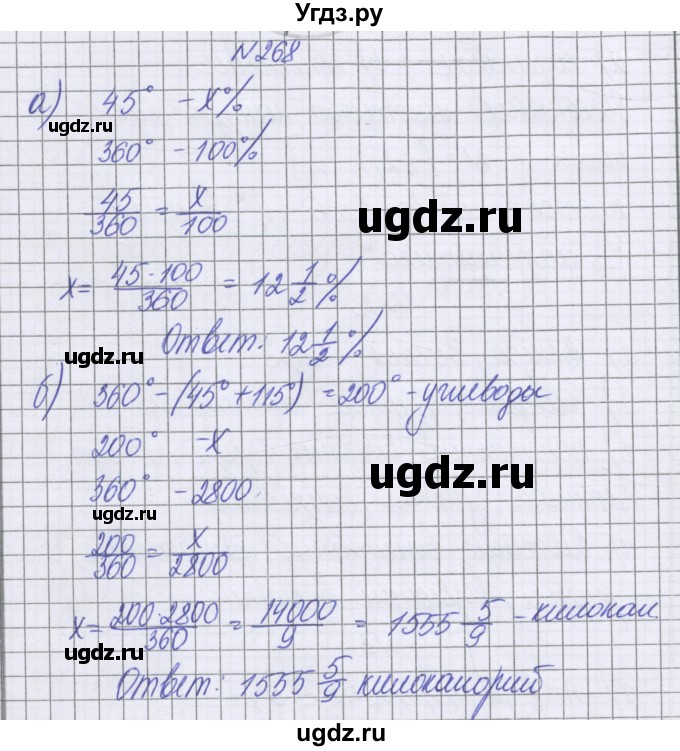 Угдз.ру
№268
а) 45° - x%
ugdz.ru
360° - 100%
45/360 = x/100
ugdz.ru
x = 45·100/360 = 12 1/2 %
Ответ: 12 1/2 %
ugdz.ru
б) 360° - (45° + 115°) = 200° - углеводы
200° - x
ugdz.ru
360° - 2800
ugdz.ru
200/360 = x/2800
x = 200·2800/360 = 14000/9 = 1555 5/9 - килокал.
ugdz.ru
Ответ: 1555 5/9 килокалорий
ugdz.ru
Угдз.ру